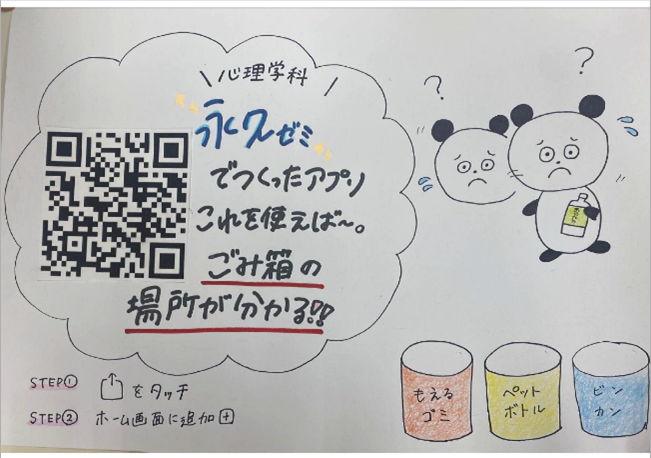 \ 心理学科 /
永久ゼミ
でつくったアプリ
これを使えば〜。
ごみ箱の
場所が分かる!!
STEP① をタッチ
STEP② ホーム画面に追加
?
?
もえる
ゴミ
ペット
ボトル
ビン
カン